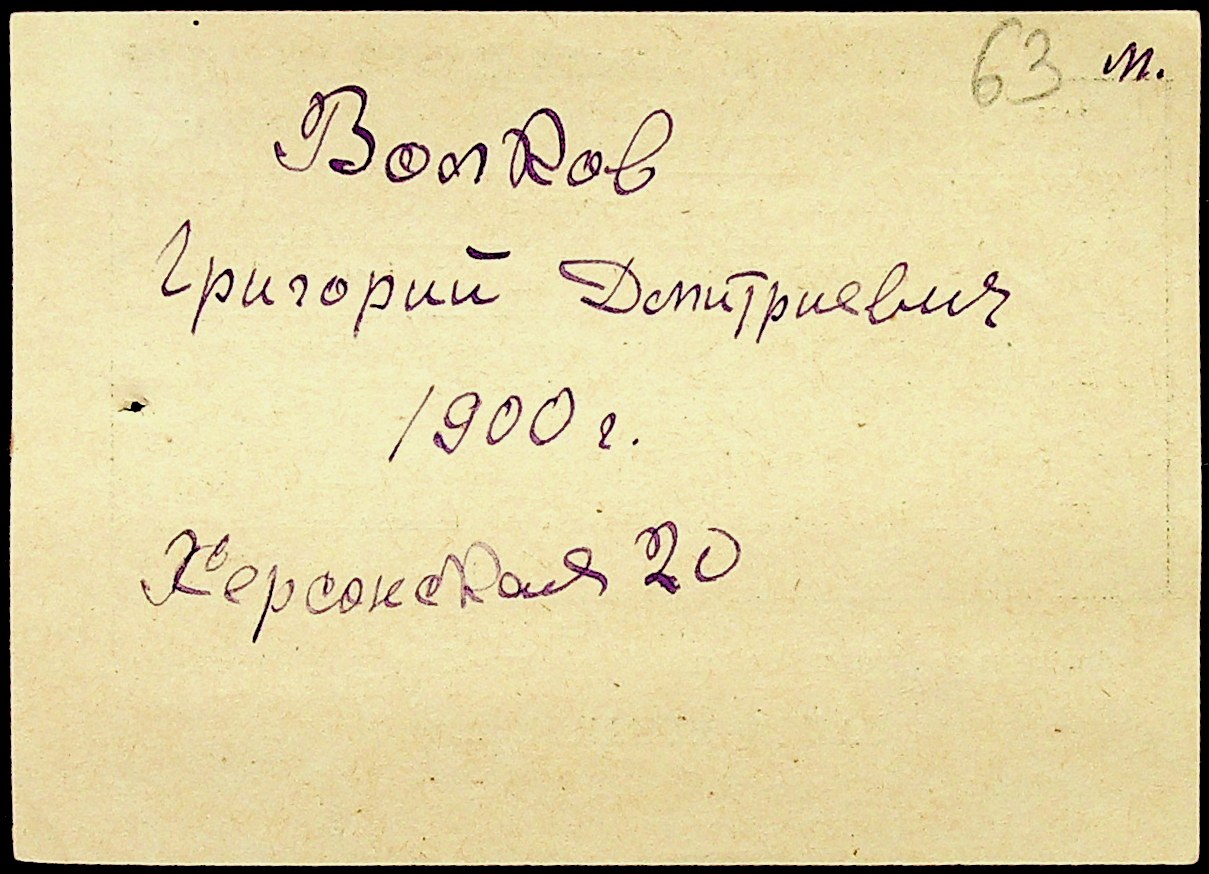 63 м.
Волков
Григорий Дмитриевич
1900 г.
Херсонская 20